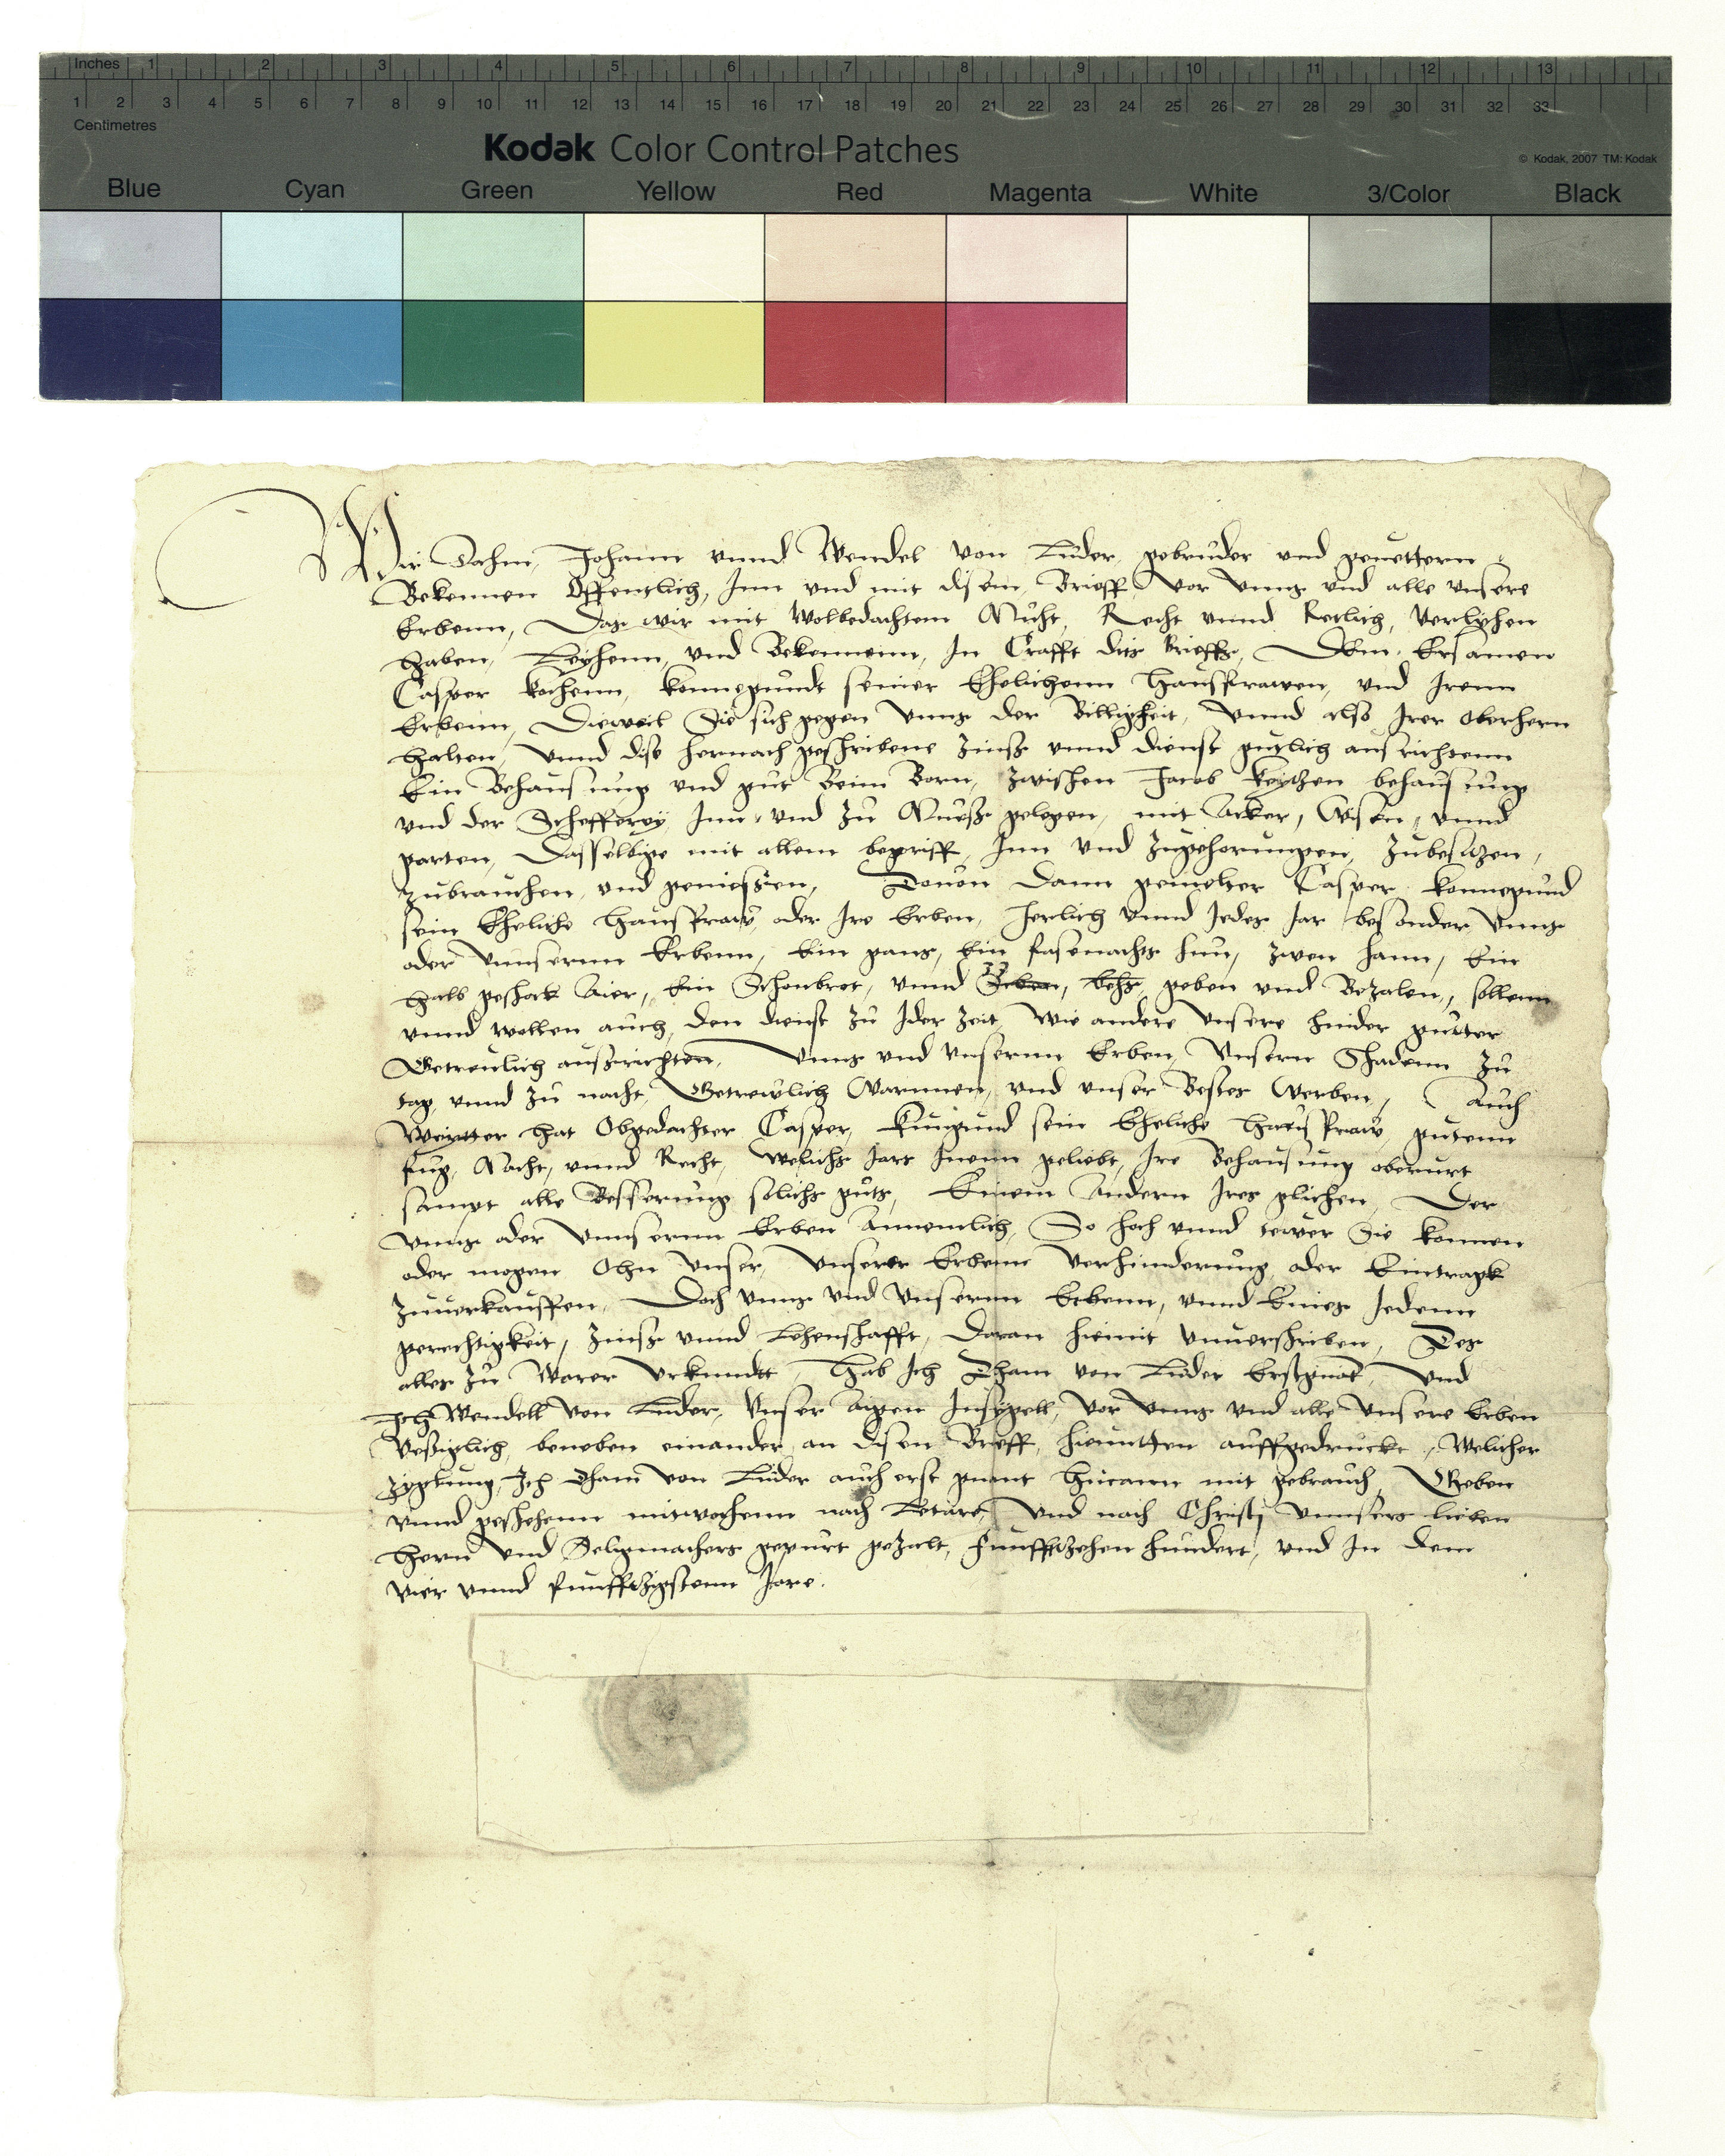 Inches 1 2 3 4 5 6 7 8 9 10 11 12 13
1 2 3 4 5 6 7 8 9 10 11 12 13 14 15 16 17 18 19 20 21 22 23 24 25 26 27 28 29 30 31 32 33
Centimetres
Kodak Color Control Patches
© Kodak, 2007 TM: Kodak
Blue Cyan Green Yellow Red Magenta White 3/Color Black
Wir Johann vnnd Wendel von Luder, gebruder und geuettern
Bekennen Offentlich, Inn vnd mit disem Brieff, Vor vnns vnd alle vnsere
Erbenn, Das wir mit Wolbedachtem Muht, Recht vnnd Retlich, verlyhen
haben, Leyhenn, vnd Bekennenn, In Crafft dits brieffs, Dem Ersamen
Casper kochenn, konnegundt seiner Ehelichenn Hausfrawen, vnd Irenn
Erbenn, Dieweil Sie sich gegen vnns der Billigkeit, vnnd also Irer Oberhern
halten, vnnd dise hernach geschribene Zinss vnnd dienst gutlich ausrichtenn
Ein Behausung vnd gut Beim Born, Zwischen Jacob behausung
vnd der Schefferey, Inn vnd Zu gelegen, mit Acker, Wisen, vnnd
garten, Dasselbige mit allem begriff, Inn vnd Zugehorungen, Zubesitzen,
Zubrauchen, vnd geniessen, Dauon Dann gemelter Casper konnegund
sein Eheliche Hausfraw, oder Ire Erben, Jerlich vnnd Jedes Jar besonder vnns
oder vnnsernn Erbenn, Ein gans, Ein fasenachts hun, Zwen hann, Ein
halb geschock Aier, Ein Schonbrot, vnnd geben vnd Bezalen, sollenn
vnnd wollen auch, den dienst Zu Ider Zeit, Wie andere vnsere hinder gutter
Getreulich aussrichten, vnns vnd vnsernn Erben, Vnsern Schadenn Zu
tag, vnnd Zu nacht, Getrewlich Warnnen, vnd vnser Bestes Werben, Auch
Weitter hat Obgedachter Casper, kungund sein Eheliche Hausfraw, gutenn
fug, Macht, vnnd Recht, Welichs Jars Inenn geliebt, Ire Behausung oberurt
sampt alle Besserung solichs guts, Einem Andern Ires glichen, Der
vnns oder vnnsernn Erben Annemlich, So hoch vnnd tewer Sie konnen
oder mogen Ohn vnser, vnserer Erbenn Verhinderung oder Eintragk
Zuuerkauffen, Doch vnns vnd vnsernn Erbenn, vnnd Eines Jedenn
gerechtigkeit, Zinss vnnd Lehenschafft, Daran hiemit vnuerschriben, Des
alles Zu Warer Vrkundtt, Hab Ich Tham von Luder Erstgnat, Vnd
Ich Wendell von Luder, Vnser Aigen Insygell, Vor vnns vnd alle vnsere Erben
beneben einander, an disen Brieff, hieuntten auffgedruckt, Welicher
Ich Tham von Luder auch erst gnant hirann mit gebrauch, Geben
vnnd geschehenn mitwochenn nach Letare, Vnd nach Christj vnnsers lieben
Hern vnd Seligmachers gepurt gezalt, funfftzehen hundert, vnd In dem
vier vnnd funfftzigstenn Jare.